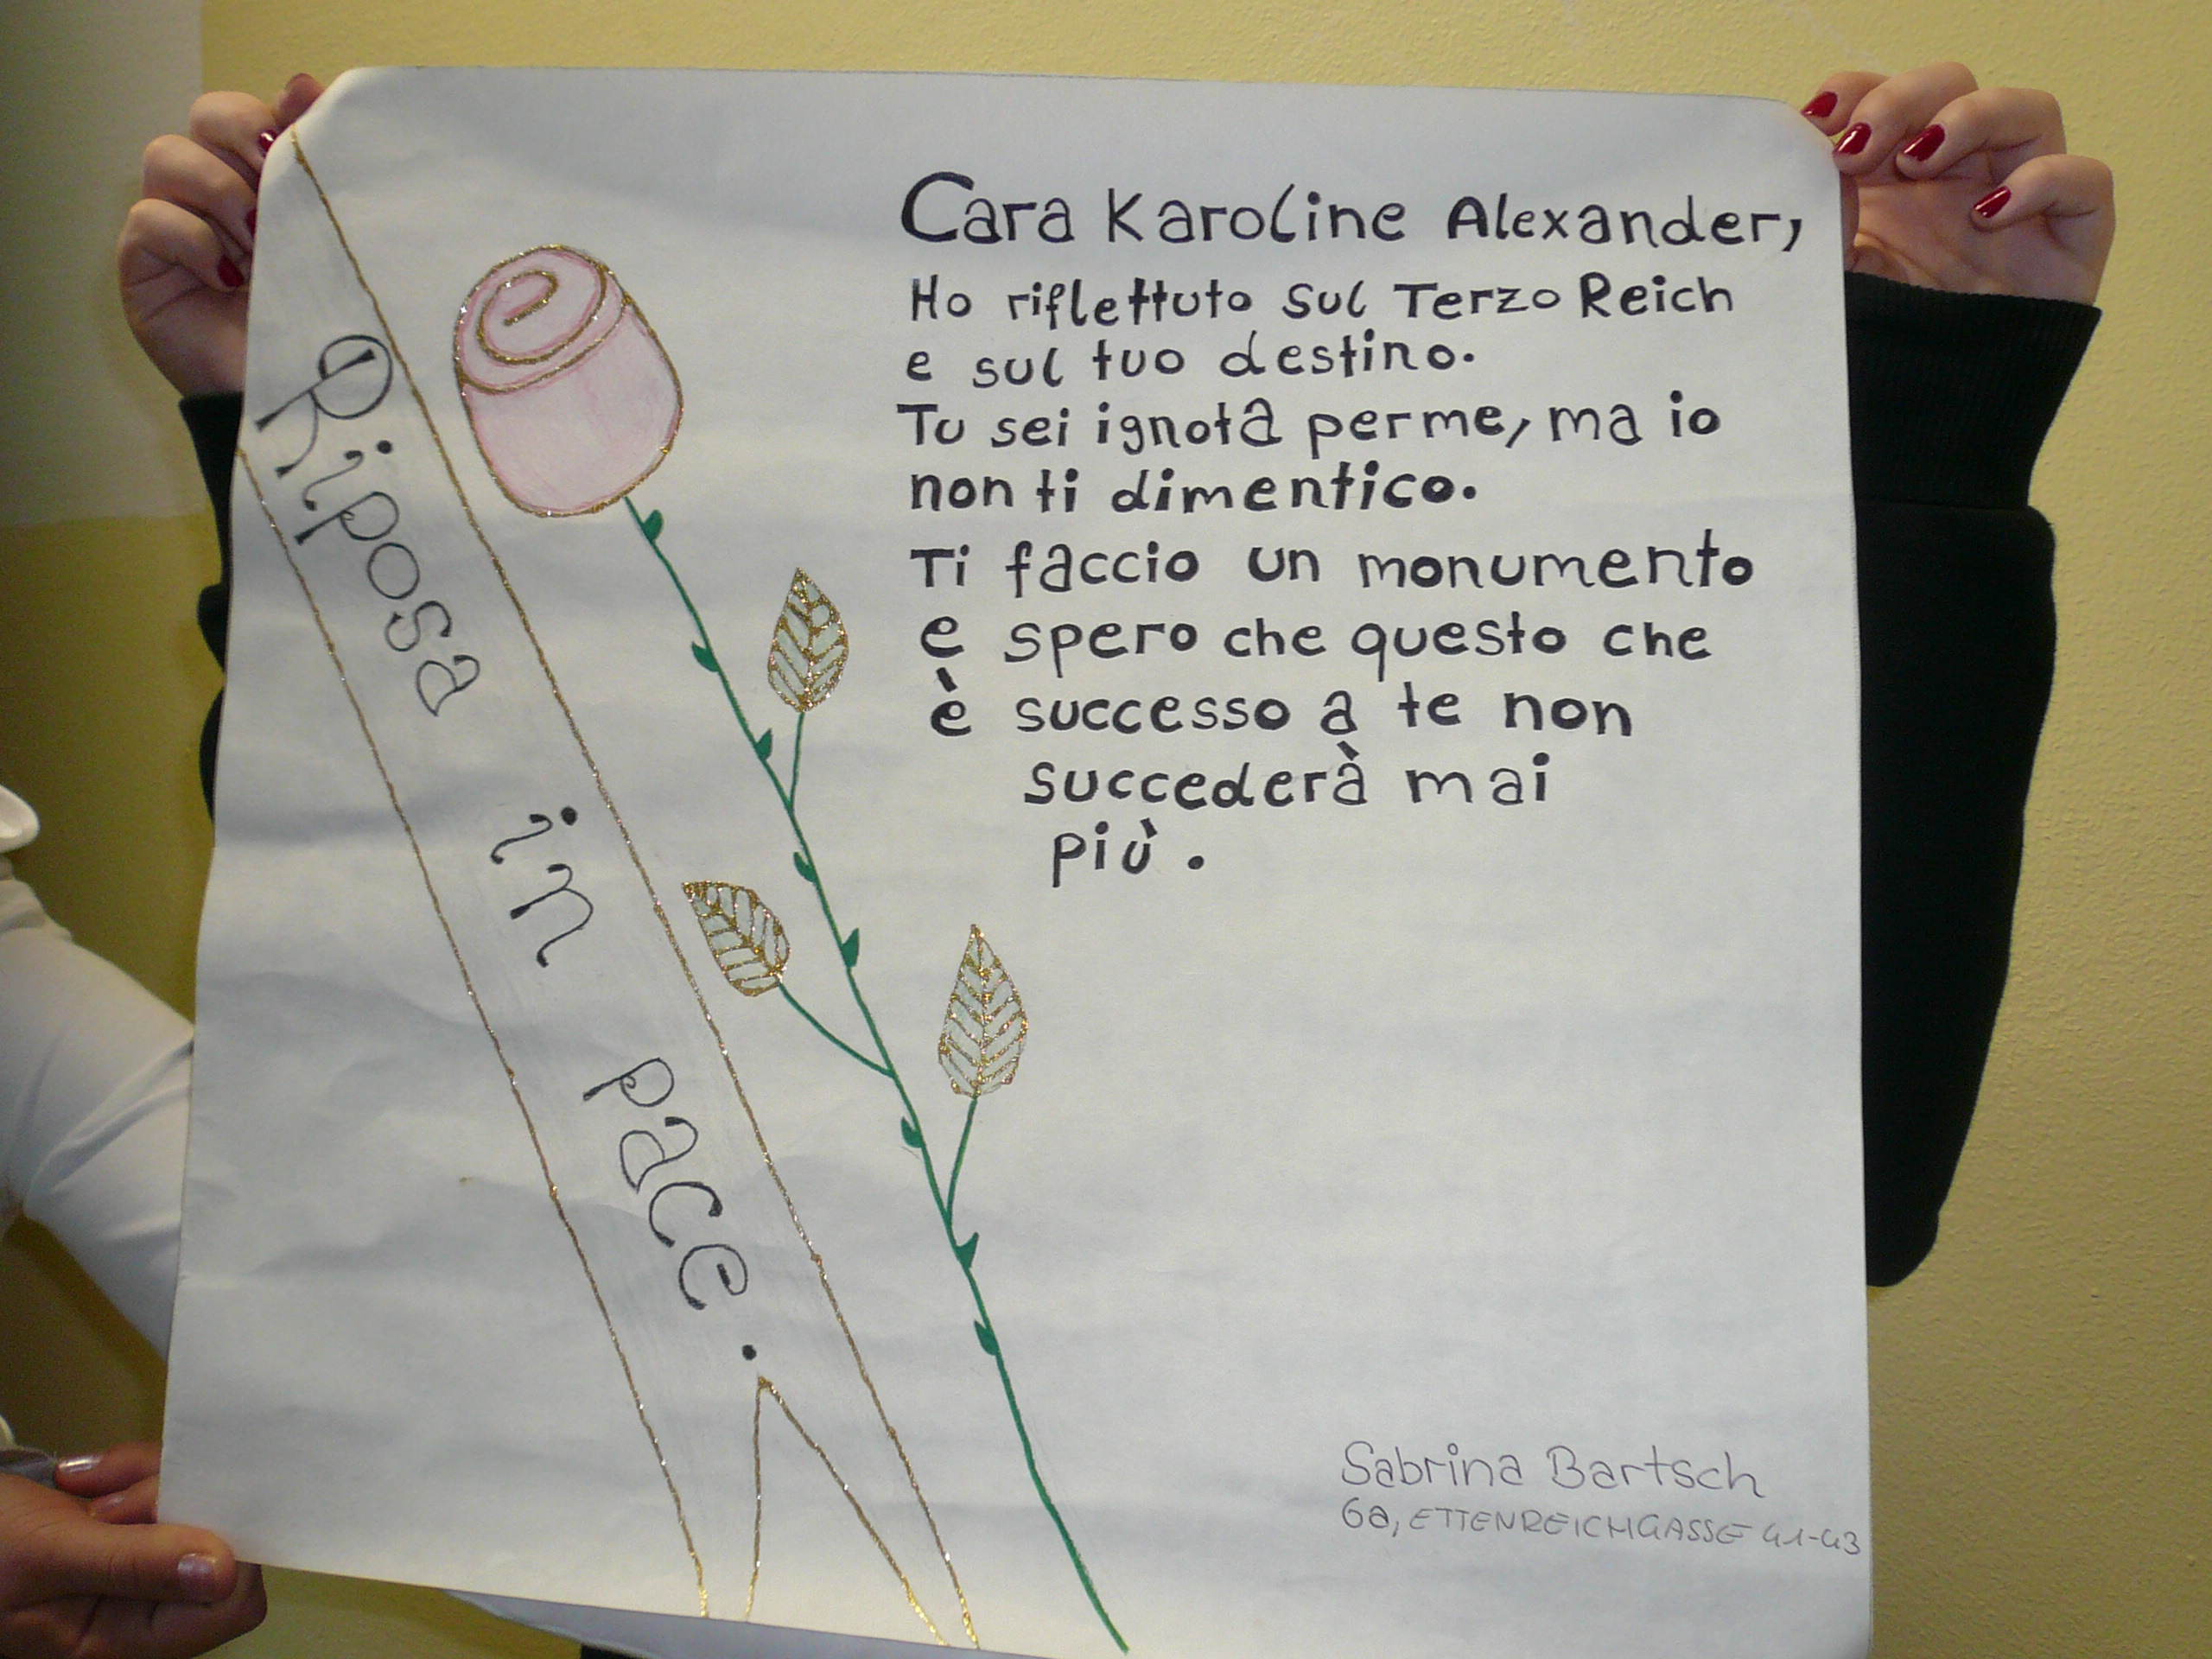 Riposa in pace.
Cara Karoline Alexander,
Ho riflettuto sul Terzo Reich
e sul tuo destino.
Tu sei ignota per me, ma io
non ti dimentico.
Ti faccio un monumento
e spero che questo che
è successo a te non
succederà mai
più.
Sabrina Bartsch
6a, ETTENREICHGASSE 41-43